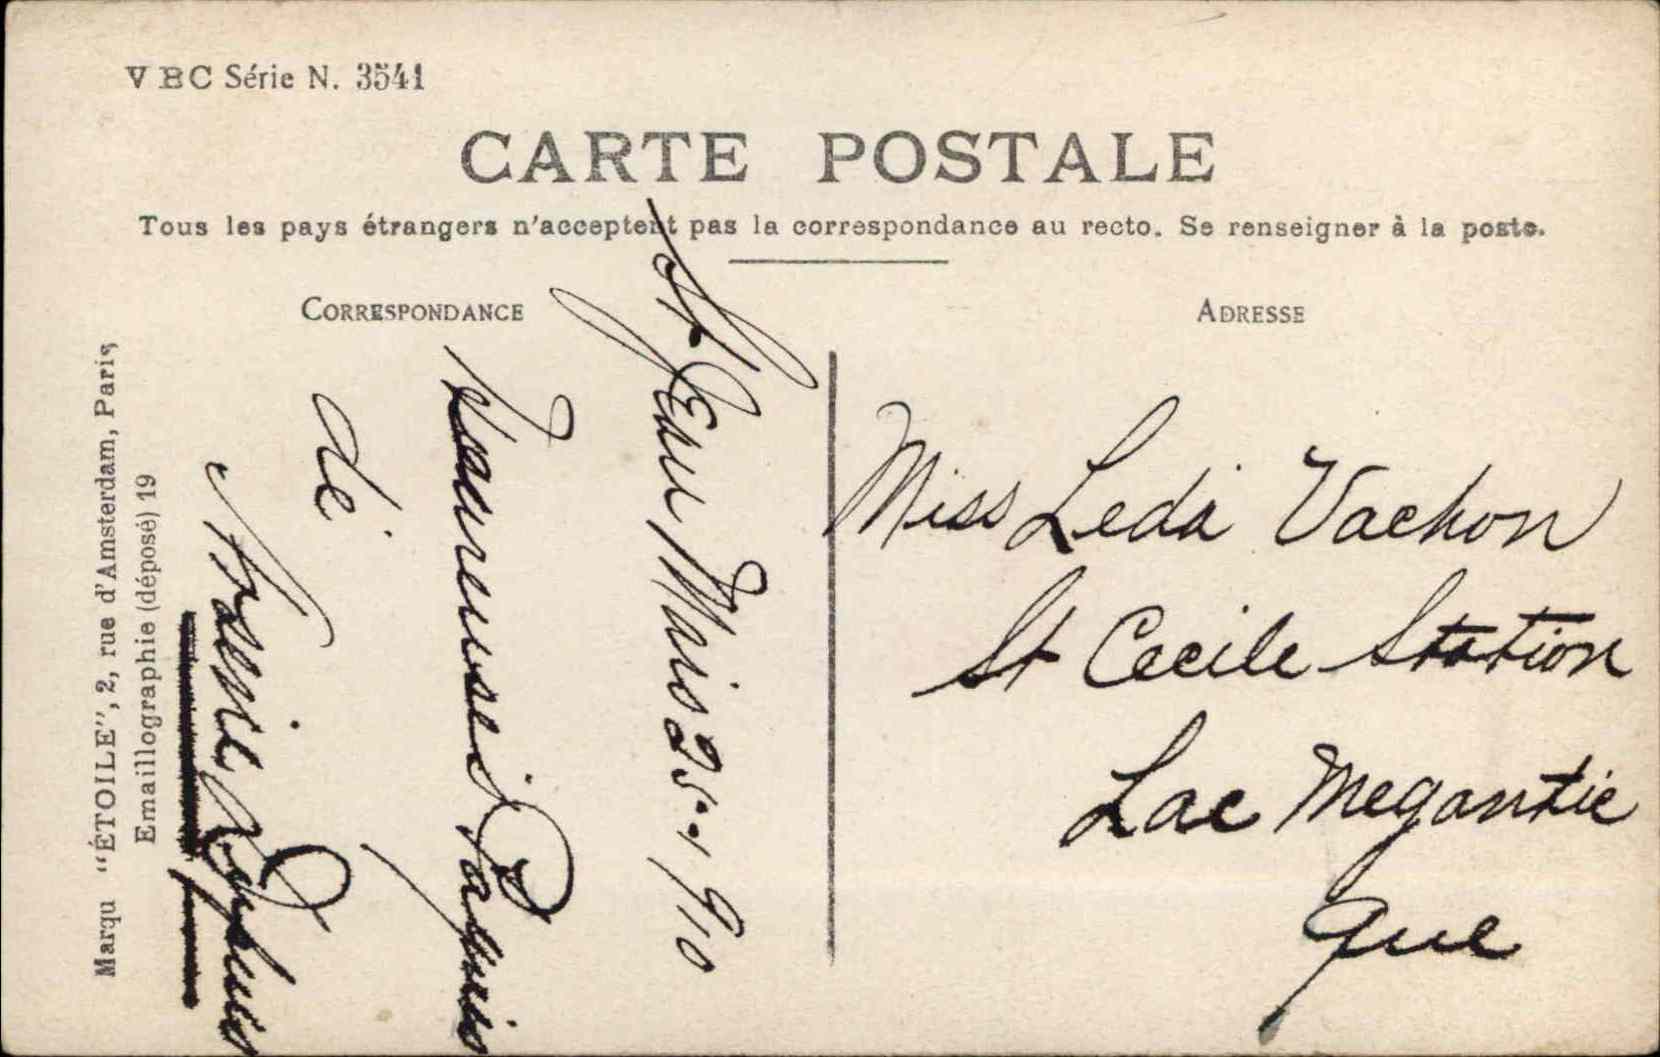 V B C Série N. 3541
CARTE POSTALE
Tous les pays étrangers n'acceptent pas la correspondance au recto. Se renseigner à la poste.
CORRESPONDANCE
ADRESSE
Marqu "ÉTOILE", 2, rue d'Amsterdam, Paris
Emaillographie (déposé) 19
St
25 - 1910
Heureuses Paques
de
Miss Leda Vachon
St Cecile Station
Lac Megantic
Que